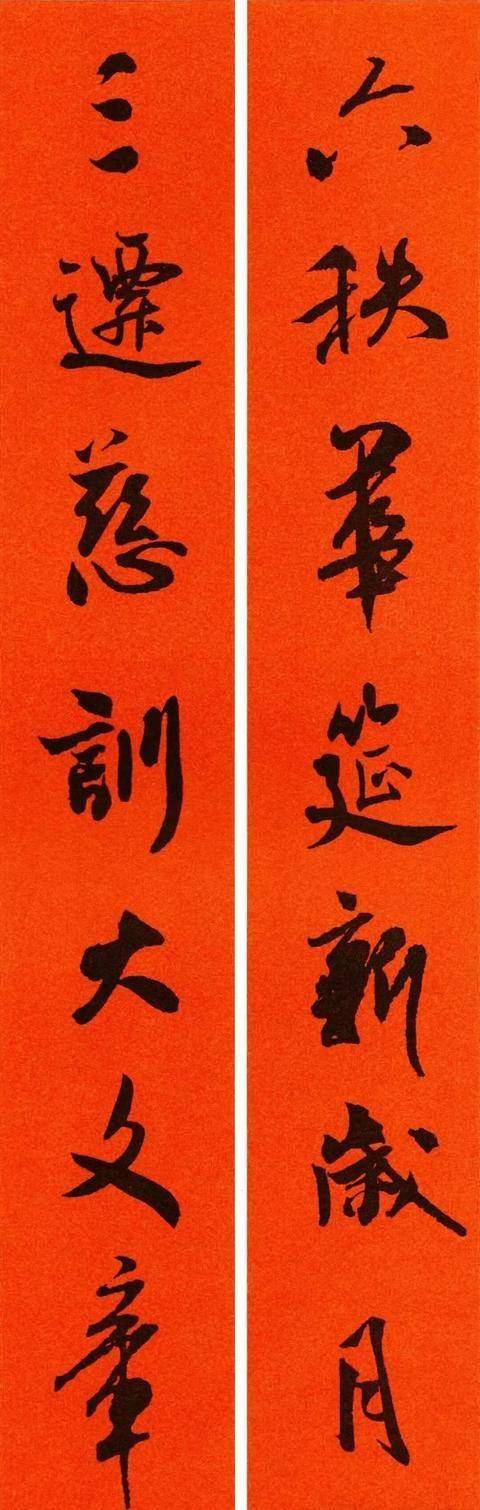 六秩華筵新歲月
三遷慈訓大文章